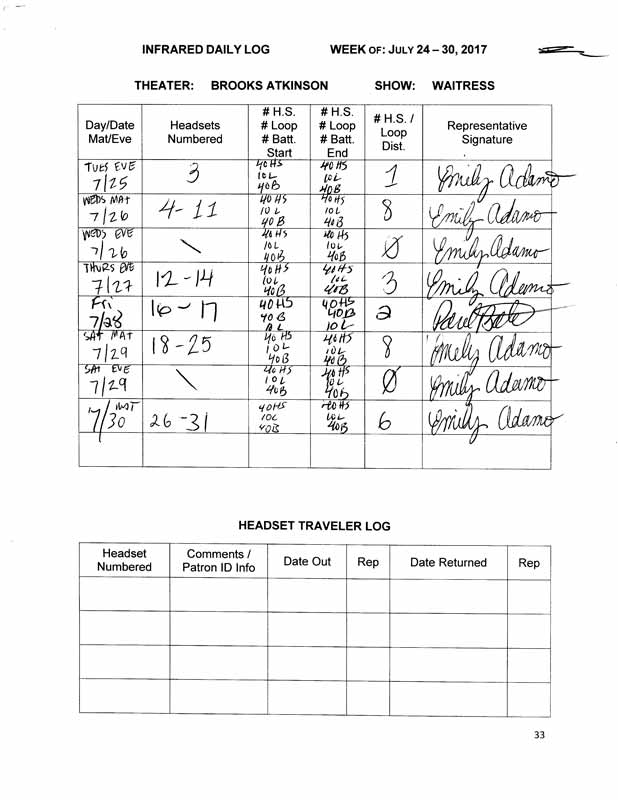 INFRARED DAILY LOG WEEK OF: JULY 24 – 30, 2017
THEATER: BROOKS ATKINSON SHOW: WAITRESS
Day/Date Mat/Eve
Headsets Numbered
# H.S. # Loop # Batt. Start
# H.S. # Loop # Batt. End
# H.S. / Loop Dist.
Representative Signature
TUES EVE 7/25 3 40HS 10L 40B 40HS 10L 40B 1 Emily Adamo
WEDS MAT 7/26 4-11 40HS 10L 40B 40HS 10L 40B 8 Emily Adamo
WEDS EVE 7/26 \ 40HS 10L 40B 40HS 10L 40B Ø Emily Adamo
THURS EVE 7/27 12-14 40HS 10L 40B 40HS 10L 40B 3 Emily Adamo
Fri 7/28 16-17 40HS 40B 40HS 40B 10L 2
SAT MAT 7/29 18-25 40HS 10L 40B 40HS 10L 40B 8 Emily Adamo
SAT EVE 7/29 \ 40HS 10L 40B 40HS 10L 40B Ø Emily Adamo
7/30 MAT 26-31 40HS 10L 40B 40HS 10L 40B 6 Emily Adamo
HEADSET TRAVELER LOG
Headset Numbered
Comments / Patron ID Info
Date Out
Rep
Date Returned
Rep
33